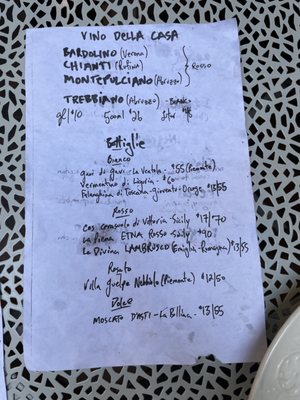 VINO DELLA CASA
BARDOLINO (Verona)
CHIANTI (Rufina)
MONTEPULCIANO (Abruzzo)
ROSSO
TREBBIANO (Abruzzo) - BIANCO
gl/$10 500ml $26 liter
Bottiglie
Bianco
gavi di gavi - La - $55 (Piemonte)
Vermentino di Liguria -
Falanghina di - $13/55
Rosso
Cerasuolo di Vittoria - Sicily $17/$70
ETNA Rosso - Sicily - $90
La Divina, LAMBRUSCO (Emilia-Romagna) $13/55
Rosato
Villa Guelpa Nebbiolo (Piemonte) $12/50
Dolce
MOSCATO D'ASTI - - $13/55